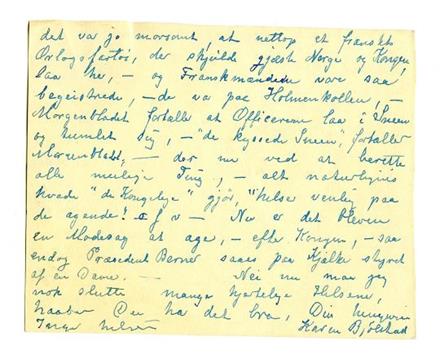 det var jo morsomt, at nettop et franskt
Orlogsfartøi, der skulde gjæste Norge og Kongen,
laa her, – og Franskmændene vare saa
begeistrede, – de var paa Holmenkollen, –
Morgenbladet fortaller at Officererne laa i Sneen
og tumlet sig, – "de kyssede Sneen", fortaller
Morgenbladt, – der nu ved at berette
alle mulige Ting, – alt naturligvis
hvade "de Kongelige" gjør, "hilser venlig paa
de agende! o f v – Nu er det bleven
en Modesag at age, – efter Kongen, – saa
endog Præsident Berner saaes paa Kjælke styret
af en Dame. – – Nei nu maa jeg
nok slutte mange hjertelige Hilsener,
haaber Du ha' det bra, Din hengivne
Inga hilser Karen Bjølstad